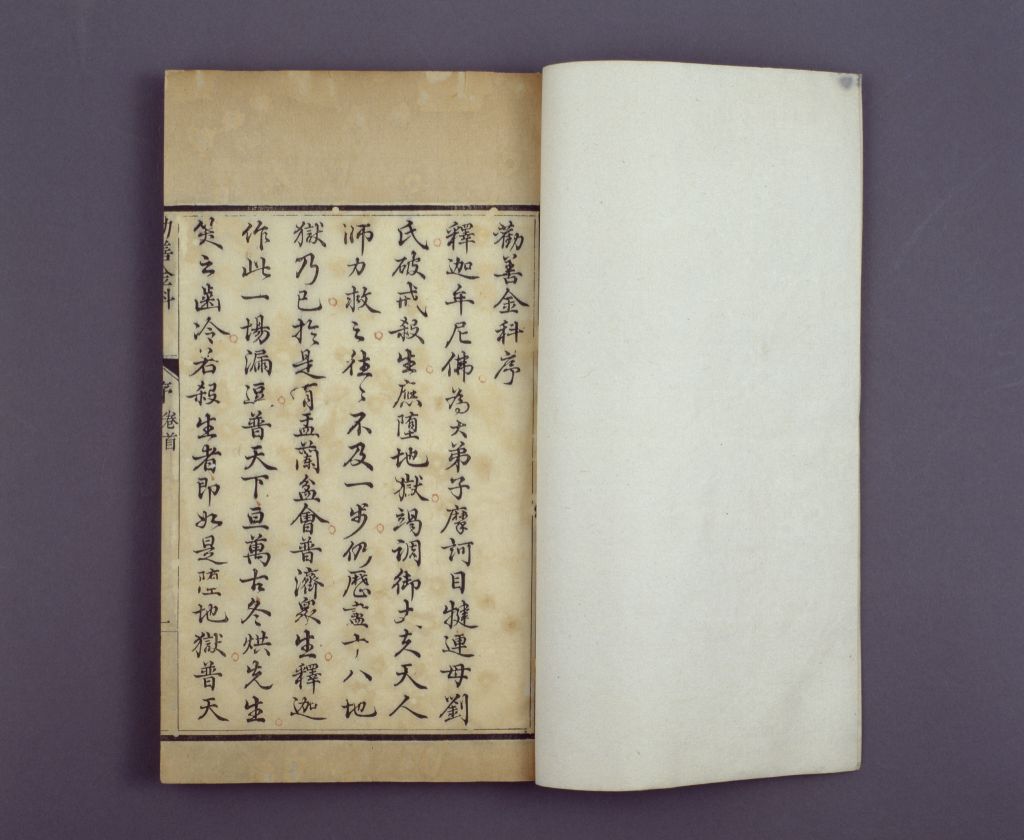 勸善金科序
釋迦牟尼佛為大弟子摩訶目犍連母劉
氏破戒殺生應墮地獄竭調御丈夫天人
師力救之往〻不及一步仍歷盡十八地
獄乃已於是有盂蘭盆會普濟眾生釋迦
作此一場漏逗普天下亘萬古冬烘先生
笑之齒冷若殺生者即如是墮地獄普天
勸善金科
序 卷首
一